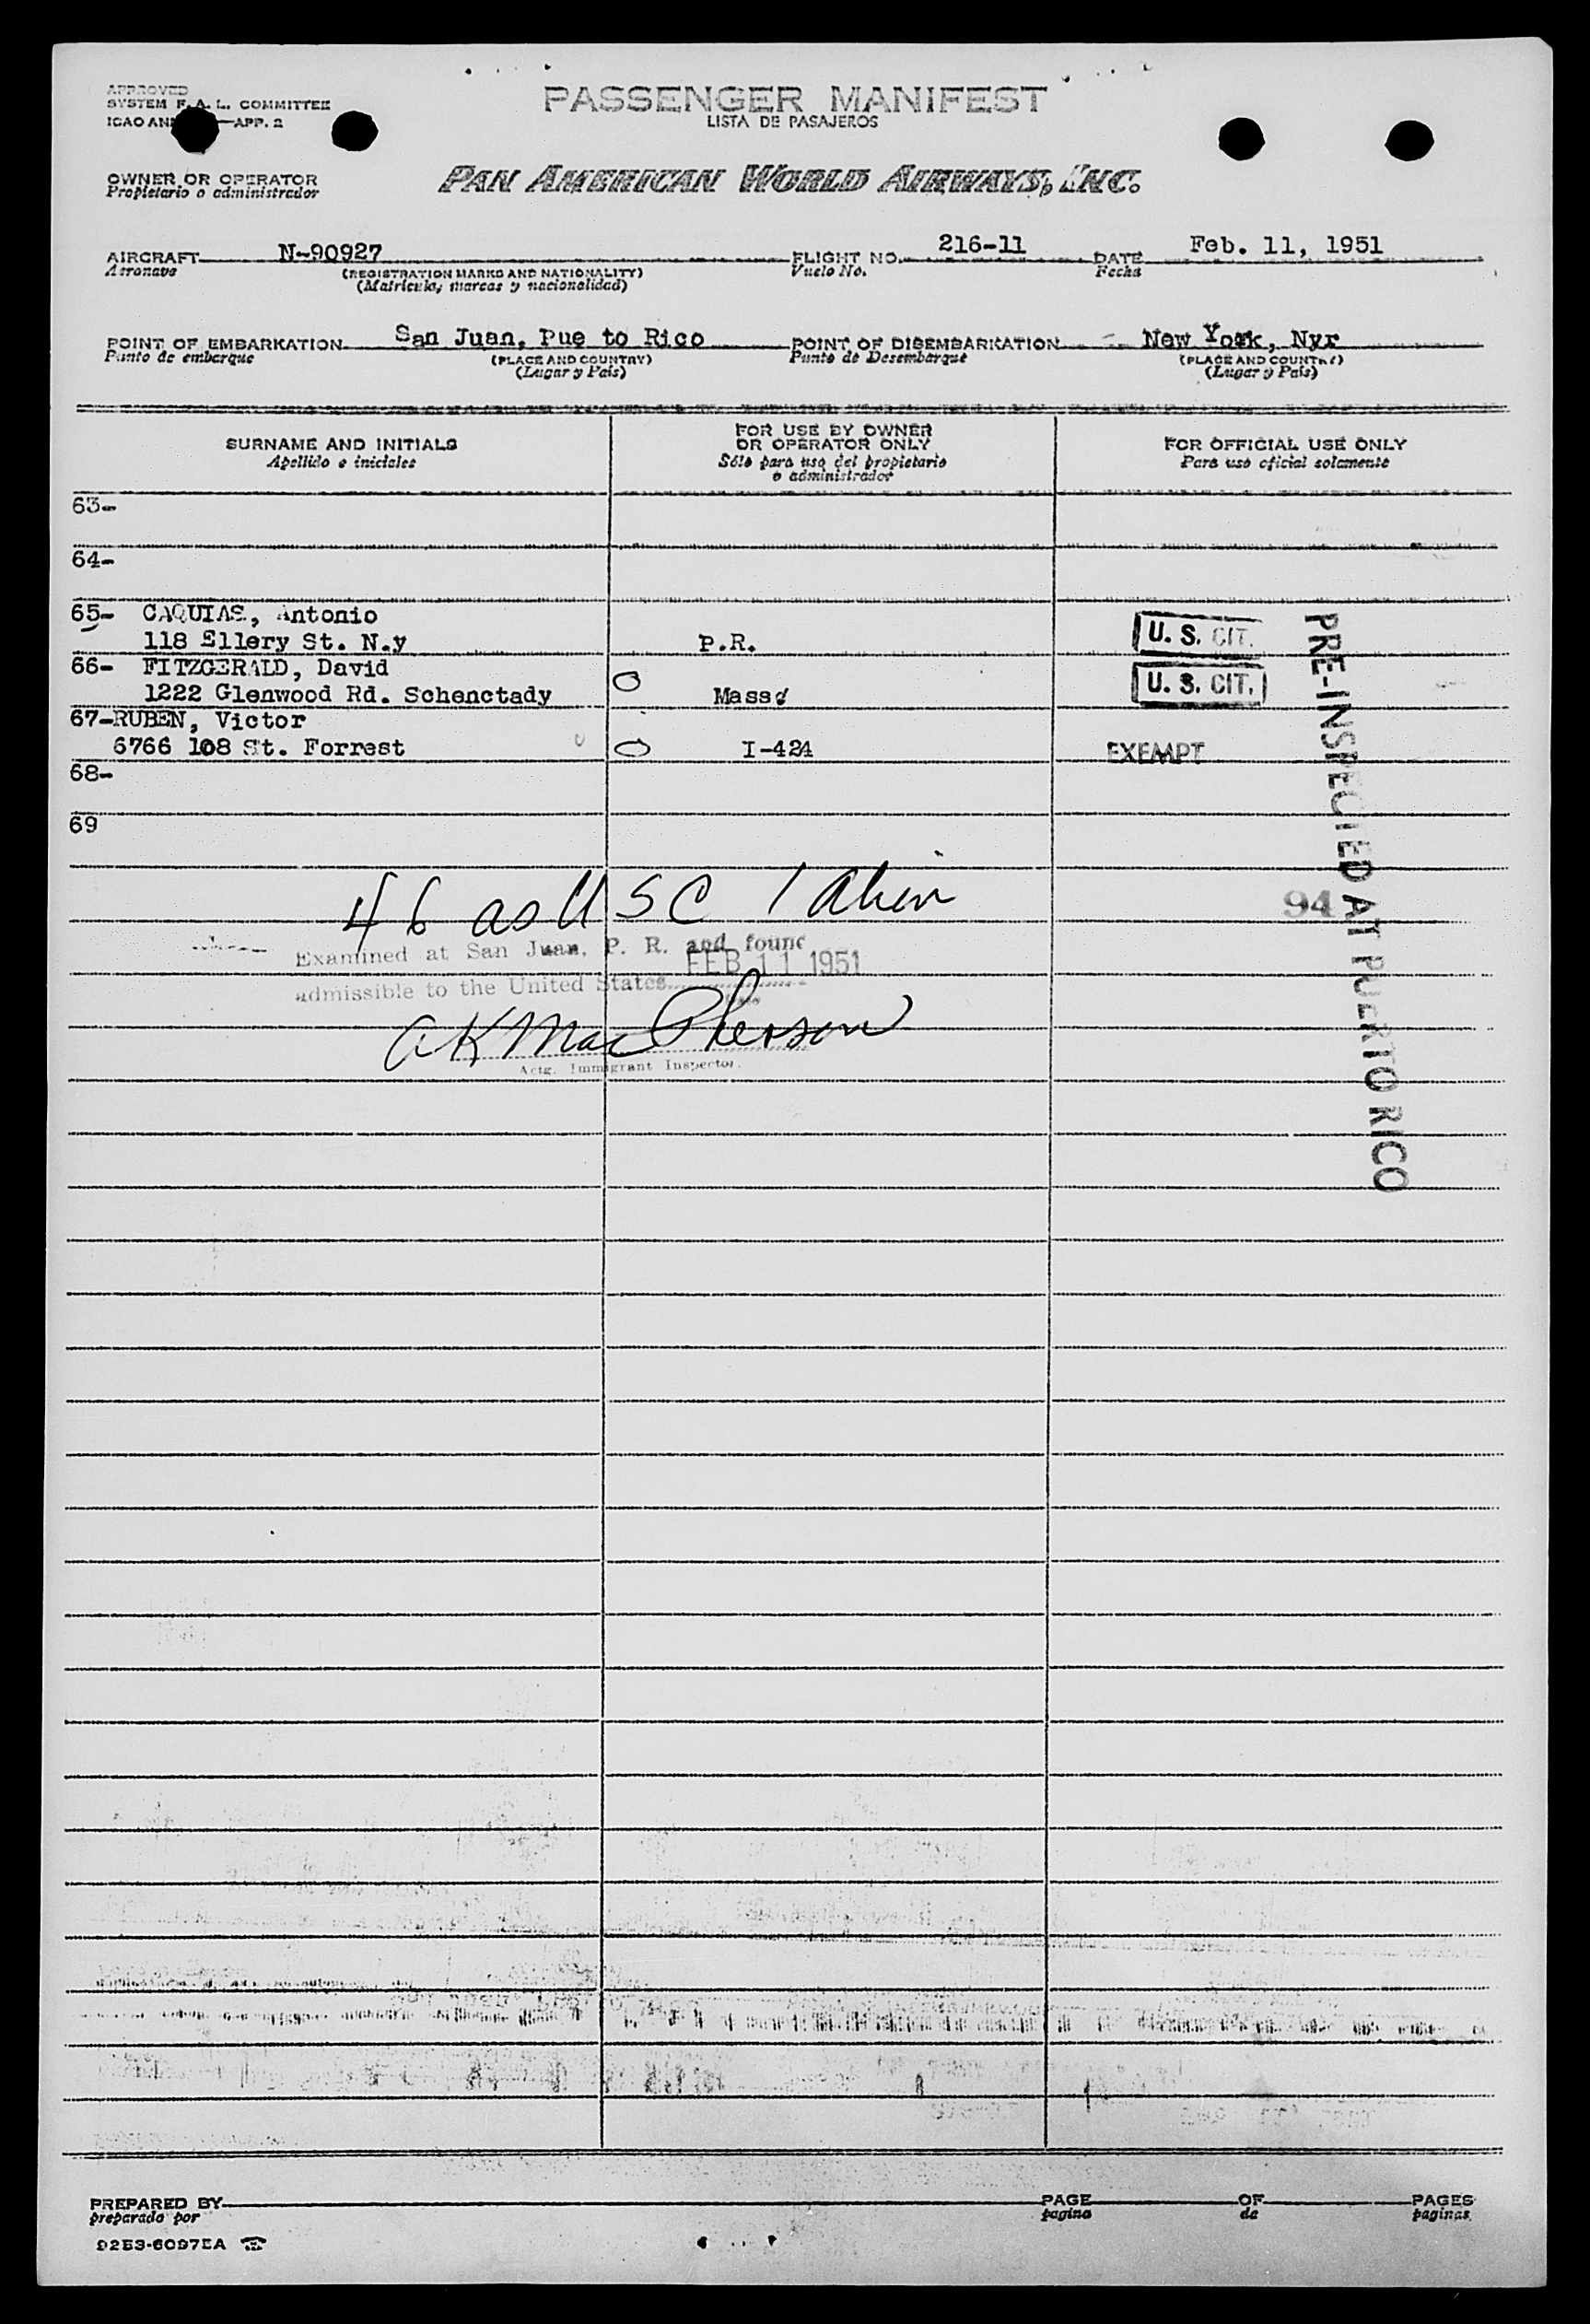 APPROVED
SYSTEM F. A. L. COMMITTEE
ICAO AN —APP. 2
PASSENGER MANIFEST
LISTA DE PASAJEROS
OWNER OR OPERATOR
Propietario o administrador
PAN AMERICAN WORLD AIRWAYS, INC.
AIRCRAFT N-90927 FLIGHT NO. 216-11 DATE Feb. 11, 1951
Aeronave (REGISTRATION MARKS AND NATIONALITY) Vuelo No. Fecha
(Matricula, marcas y nacionalidad)
POINT OF EMBARKATION San Juan, Pue to Rico POINT OF DISEMBARKATION New Yosk, Nyr
Punto de embarque (PLACE AND COUNTRY) Punto de Desembarque (PLACE AND COUNTRY)
(Lugar y País) (Lugar y País)
SURNAME AND INITIALS
Apellido e iniciales
FOR USE BY OWNER
OR OPERATOR ONLY
Sólo para uso del propietario
o administrador
FOR OFFICIAL USE ONLY
Para uso oficial solamente
63-
64-
65- CAQUIAS, Antonio
118 Ellery St. N.y P.R. U. S. CIT.
66- FITZGERALD, David
1222 Glenwood Rd. Schenctady Mass U. S. CIT.
67-RUBEN, Victor
6766 108 St. Forrest I-424 EXEMPT
68-
69
PRE-INSPECTED AT PUERTO RICO
46 as USC 1 Alien
94
Examined at San Juan, P. R. and found
FEB 11 1951
admissible to the United States
AK MacPherson
Actg. Immigrant Inspector.
PREPARED BY PAGE OF PAGES
preparado por pagina de paginas